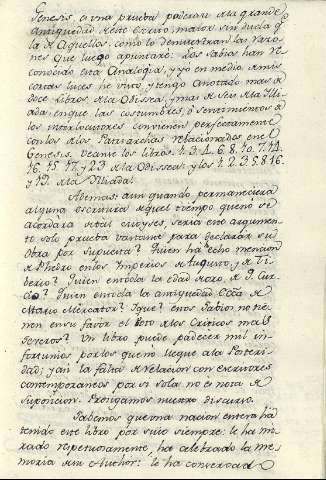 Genesis, es una prueba poderosa de la grande
Antiguedad de este Escrito, maior sin duda q.e
la de Aquellos: como lo demuestran las razo-
nes que luego apuntaré. Los Sabios han re-
conocido esta Analogia, y yo en medio de mis
cortas luces la vivo, y tengo anotado mas de
doce libros de la Odissea, y mas de seis de la Ilia-
da, en que las costumbres, ó sentimientos de
los interlocutores convienen perfectamente
con los de los Patriarchas relacionados en el
Genesis. Veanse los libros, 1. 3. 4. 6. 8. 10. 7. 14.
16. 15. 17. y 23 de la Odissea: y los 1. 2. 3. 5. 8. 16.
y 19. de la Iliada.
Ademas: aun quando permaneciera
alguna escritura de aquel tiempo que no se
acordara de tal Moyses, seria este argumen-
to sólo prueba bastante para declarar su
Obra por supuesta? Quien ha echo mencion
de Phedro en los Imperios de Augusto, y de Ti-
berio? Quien en toda la edad de oro, de Q. Cur-
cio? Quien en toda la antiguedad Ecca. de
Mario Mercator? Y que? estos Sabios no tie-
nen en su favor el voto de los Criticos mas
severos? Un libro puede padecer mil in-
fortunios por los que no llegue a la Posteri-
dad; y asi la falta de relacion con escritores
contemporaneos por si sola no es nota de
suposicion. Prosigamos nuestro discurso.
Sabemos que una nacion entera ha
tenido este libro por suio siempre: le ha mi-
rado respetuosamente, ha celebrado la me-
moria de su Author: le ha conservado